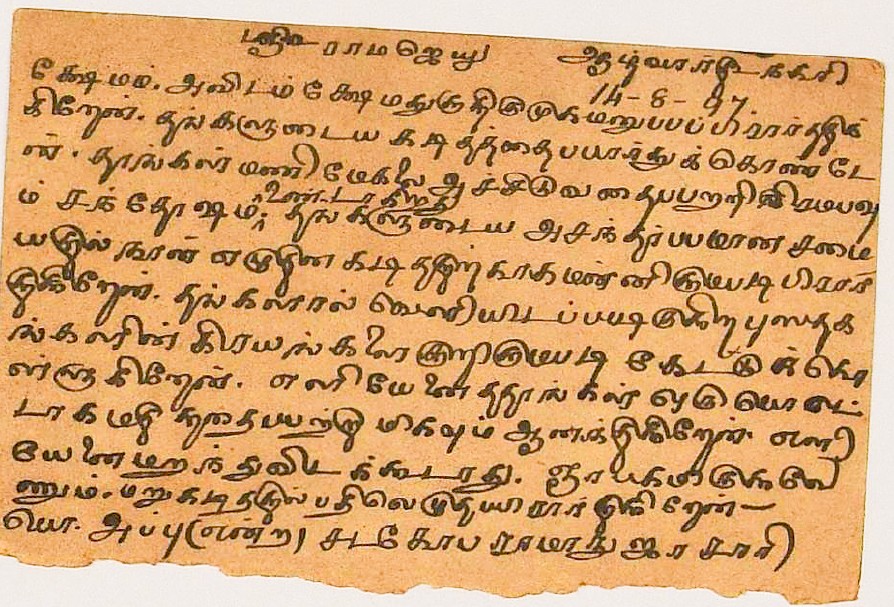 ஸ்ரீ ராமஜெயம் ஆழ்வார்திருநகரி
14-8-97
க்ஷேமம். அவிடம் க்ஷேமத்துக்கெழுதுமனுப்பப் பிரார்த்திக்
கிறேன். தங்களுடைய கடிதத்தைப்பார்த்துக் கொண்டே
ன். தாங்கள் மணிமேகலை அச்சிடுவதைப்பற்றி நிரம்பவு
ம் சந்தோஷம் உண்டாகிறது. தங்களுடைய அசந்தர்ப்பமான சமை
யத்தில் நான் எழுதின கடிதத்திற்காக மன்னிக்கும்படி பிரார்
த்திக்கிறேன். தங்களால் வெளியிடப்படுகிற புஸ்தக
ங்களின் கிரயங்களை குறிக்கும்படி கேட்டுக் கொ
ள்ளுகிறேன். எளியேனை தாங்கள் ஒரு பொருட்
டாக மதித்ததைப்பற்றி மிகவும் ஆனந்திக்கிறேன். எளி
யேனை மறந்துவிடக்கூடாது. ஞாபகமிருக்கவே
ணும். மறு கடிதத்தில் பதிலெழுதுப்பிரார்த்திக்கிறேன் -
பொ. அப்பு (என்ற) சடகோபராமாநுஜாசாரி